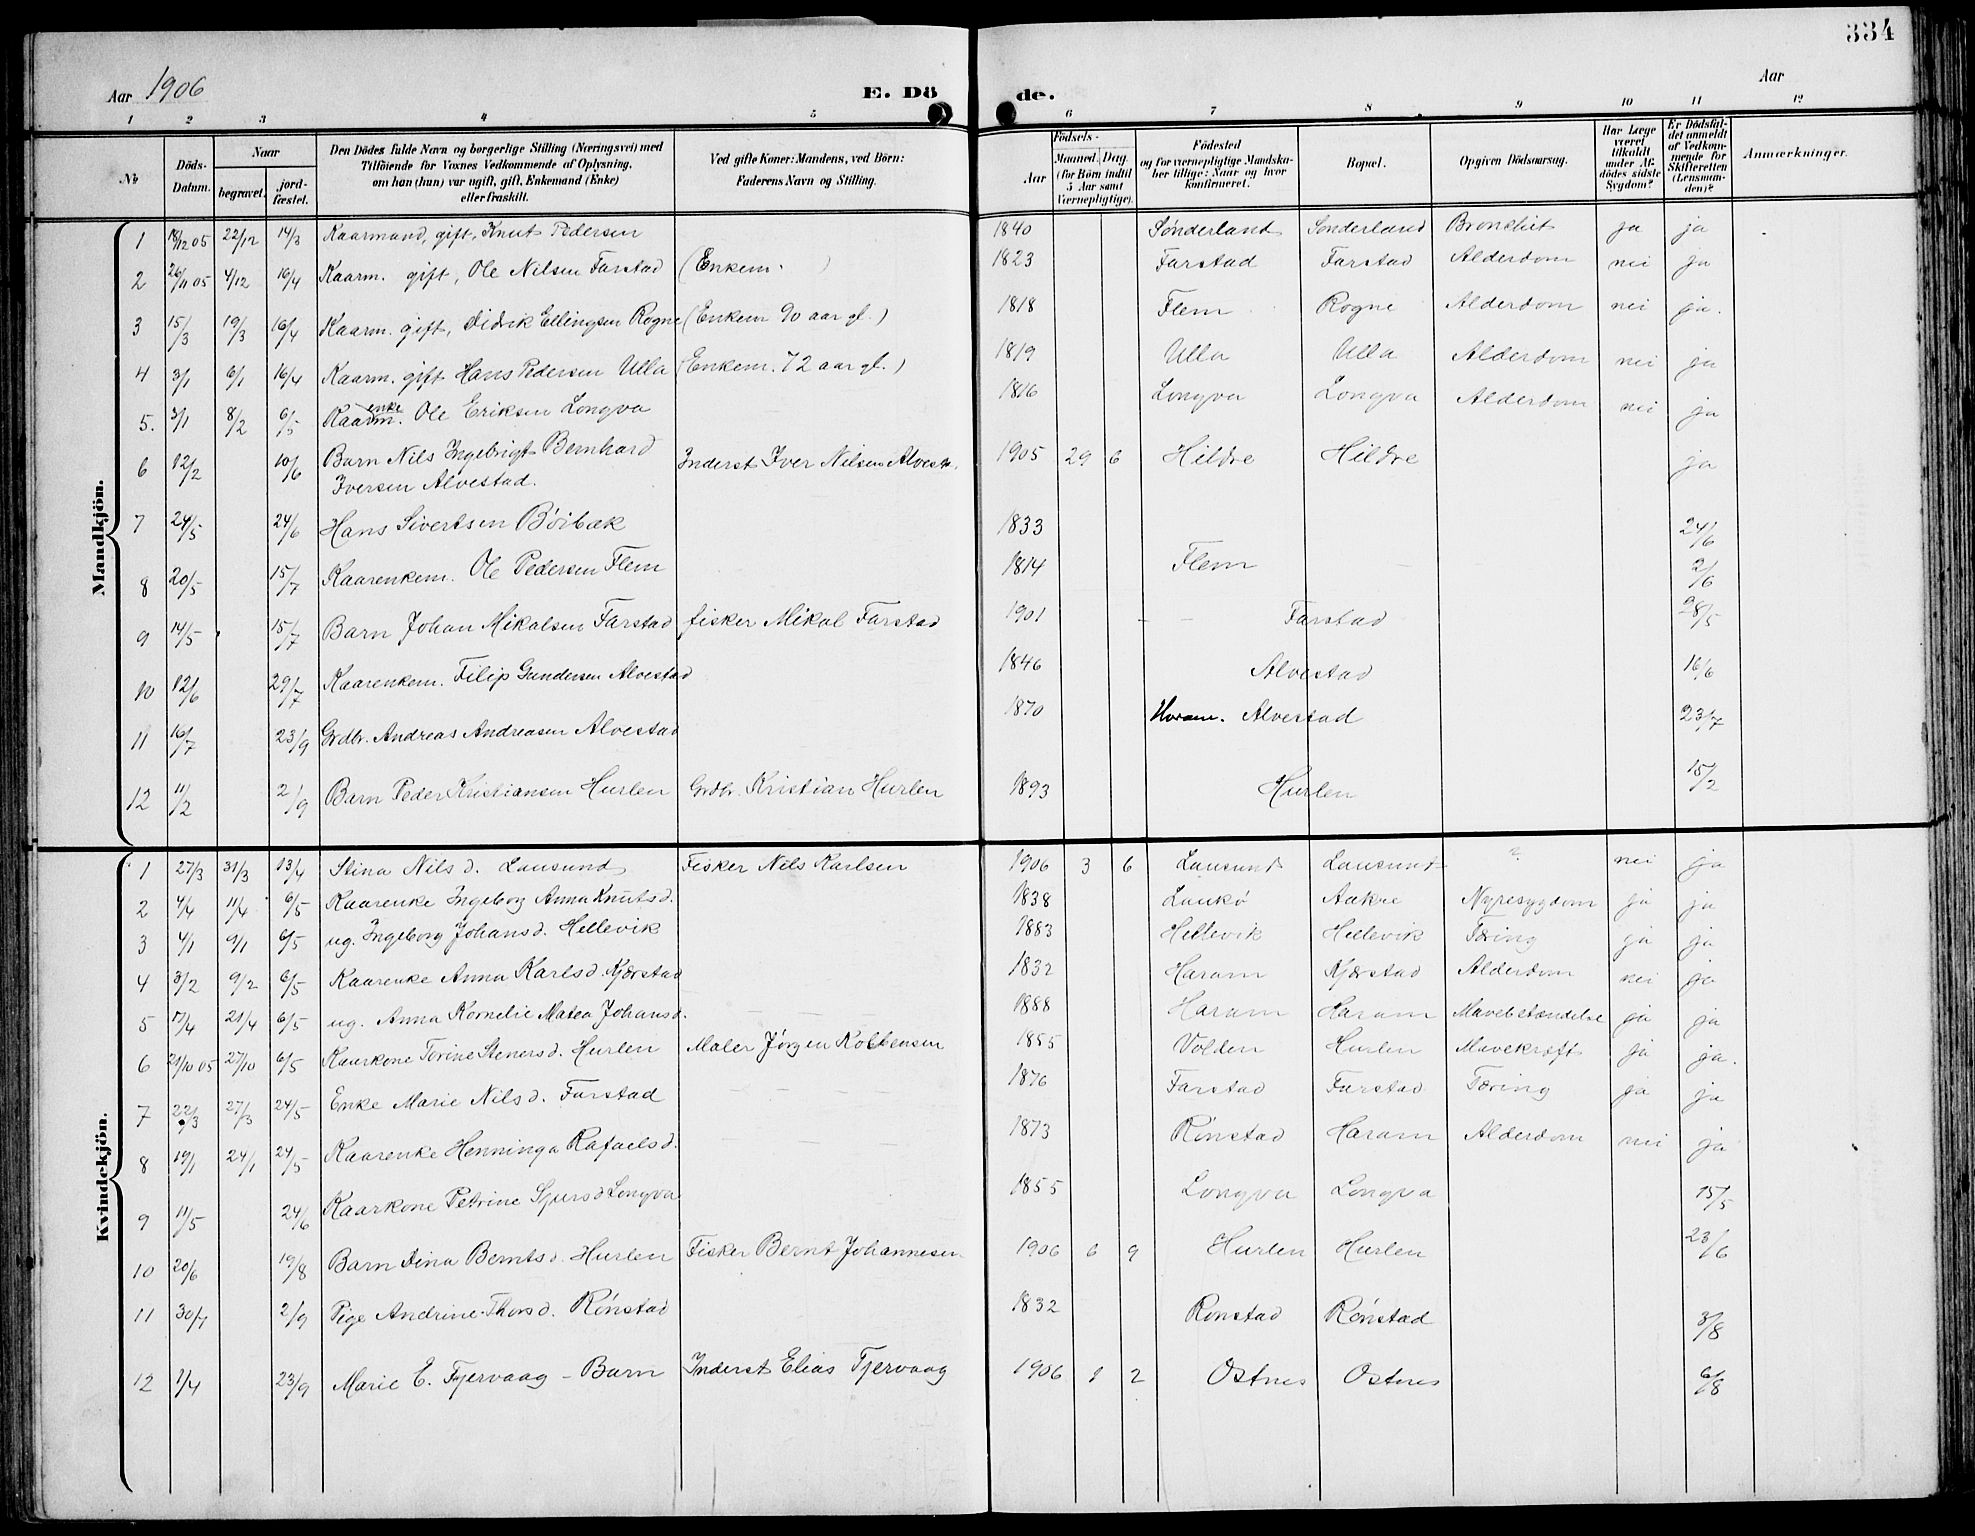 334
Aar 1906
E. Dö
de.
Aar
1 2 3 4 5 6 7 8 9 10 11 12
No
Döds-Datum.
Naar
begravet.
jord-fæstet.
Den Dödes fulde Navn og borgerlige Stilling (Næringsvei) med
Tilföiende for Voxnes Vedkommende af Oplysning,
om han (hun) var ugift, gift, Enkemand (Enke)
eller fraskilt.
Ved gifte Koner: Mandens, ved Börn:
Faderens Navn og Stilling.
Födsels-
Aar
Maaned. Dag.
(for Börn indtil
5 Aar samt
Værnepligtige).
Födested
og for værnepligtige Mandska-
ber tillige: Naar og hvor
konfirmeret.
Bopæl.
Opgiven Dödsaarsag.
Har Læge
været
tilkaldt
under Af-
dödes sidste
Sygdom?
Er Dödsfal-
det anmeldt
af Vedkom-
mende for
Skifteretten
(Lensman-
den)?
Anmærkninger.
Mandkjön.
1 18/12 05 22/12 14/3 Kaarmand, gift, Knut Pedersen 1840 Sønderland Sønderland Bronchit ja ja
2 26/11 05 4/12 16/4 Kaarm. gift, Ole Nilsen Farstad (Enkem. ) 1823 Farstad Farstad Alderdom nei ja
3 15/3 19/3 16/4 Kaarm. gift, Didrik Ellingsen Rogne (Enkem 90 aar gl.) 1818 Flem Rogne Alderdom nei ja.
4 3/1 6/1 16/4 Kaarm. gift Hans Pedersen Ulla (Enkem. 72 aar gl.) 1819 Ulla Ulla Alderdom nei ja
5. 3/1 8/2 6/5 Kaarm. enke Ole Eriksen Longva 1816 Longva Longva Alderdom nei ja
6 12/2 10/6 Barn Nils Ingebrigt Bernhard Inderst Iver Nilsen Alvest. 1905 29 6 Hildre Hildre ja
Iversen Alvestad.
7 24/5 24/6 Hans Sivertsen Bøibæk 1833 24/6
8 20/5 15/7 Kaarenkem. Ole Pedersen Flem 1814 Flem 2/6
9 14/5 15/7 Barn Johan Mikalsen Farstad fisker Mikal Farstad 1901 - - Farstad 28/5
10 12/6 29/7 Kaarenkem. Filip Gundersen Alvestad 1846 Alvestad 16/6
11 16/7 23/9 Grdbr. Andreas Andreasen Alvestad 1870 Haram. Alvestad 23/7
12 11/2 2/9 Barn Peder Kristiansen Hurlen Grdbr. Kristian Hurlen 1893 Hurlen 15/2
Kvindekjön.
1 27/3 31/3 13/4 Stina Nils d. Lausund Fisker Nils Karlsen 1906 3 6 Lausund Lausund ? nei ja
2 4/4 11/4 6/5 Kaarenke Ingeborg Anna Knutsd. 1838 Laukø Aakre Nyresygdom ja ja
3 4/1 9/1 6/5 ug. Ingeborg Johansd. Hellevik 1883 Hellevik Hellevik Tæring ja ja
4 3/2 9/2 6/5 Kaarenke Anna Karlsd. Kjærstad 1832 Haram Kjærstad Alderdom nei ja
5 17/4 21/4 6/5 ug. Anna Kornelie Matea Johansd. 1888 Haram Haram Mavebetændelse ja ja
6 21/10 05 27/10 6/5 Kaarkone Torine Stenersd. Hurlen Maler Jørgen Kolbensen 1855 Volden Hurlen Mavekræft ja ja.
7 22/3 27/3 24/5 Enke Marie Nilsd. Farstad 1876 Farstad Farstad Tæring ja ja
8 19/1 24/1 24/5 Kaarenke Henninga Rafaelsd. 1873 Rønstad Haram Alderdom nei ja
9 11/5 24/6 Kaarkone Petrine Sjursd Longva 1855 Longva Longva 15/5
10 20/6 19/8 Barn Dina Berntsd. Hurlen Fisker Bernt Johannesen 1906 6 9 Hurlen Hurlen 23/6
11 30/7 2/9 Pige Andrine Thorsd. Rønstad 1832 Rønstad Rønstad 3/8
12 1/4 23/9 Marie E. Tjervaag - Barn Inderst Elias Tjervaag 1906 1 2 Ostnes Ostnes 6/8